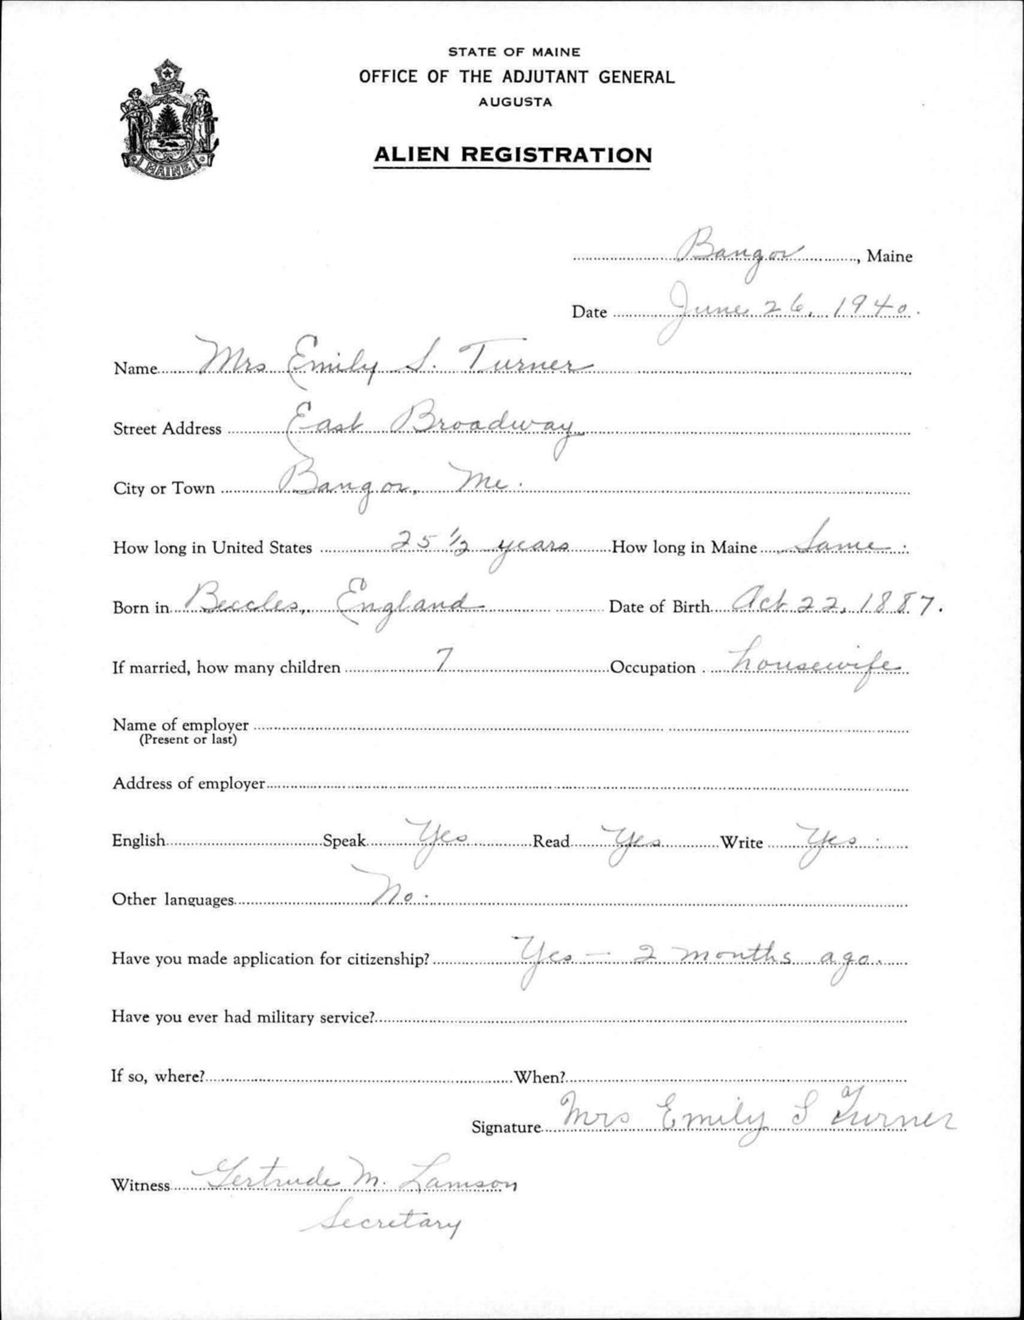 STATE OF MAINE
OFFICE OF THE ADJUTANT GENERAL
AUGUSTA
ALIEN REGISTRATION
MAINE
Bangor, Maine
Date June 26, 1940.
Name Mrs Emily S. Turner
Street Address East Broadway
City or Town Bangor, Me.
How long in United States 25 1/2 years How long in Maine Same.
Born in Beccles, England Date of Birth Oct 22, 1887.
If married, how many children 7 Occupation housewife
Name of employer
(Present or last)
Address of employer
English Speak Yes Read Yes Write Yes.
Other languages No.
Have you made application for citizenship? Yes — 2 months ago.
Have you ever had military service?
If so, where? When?
Signature Mrs Emily S Turner
Witness Gertrude M. Lamson
Secretary